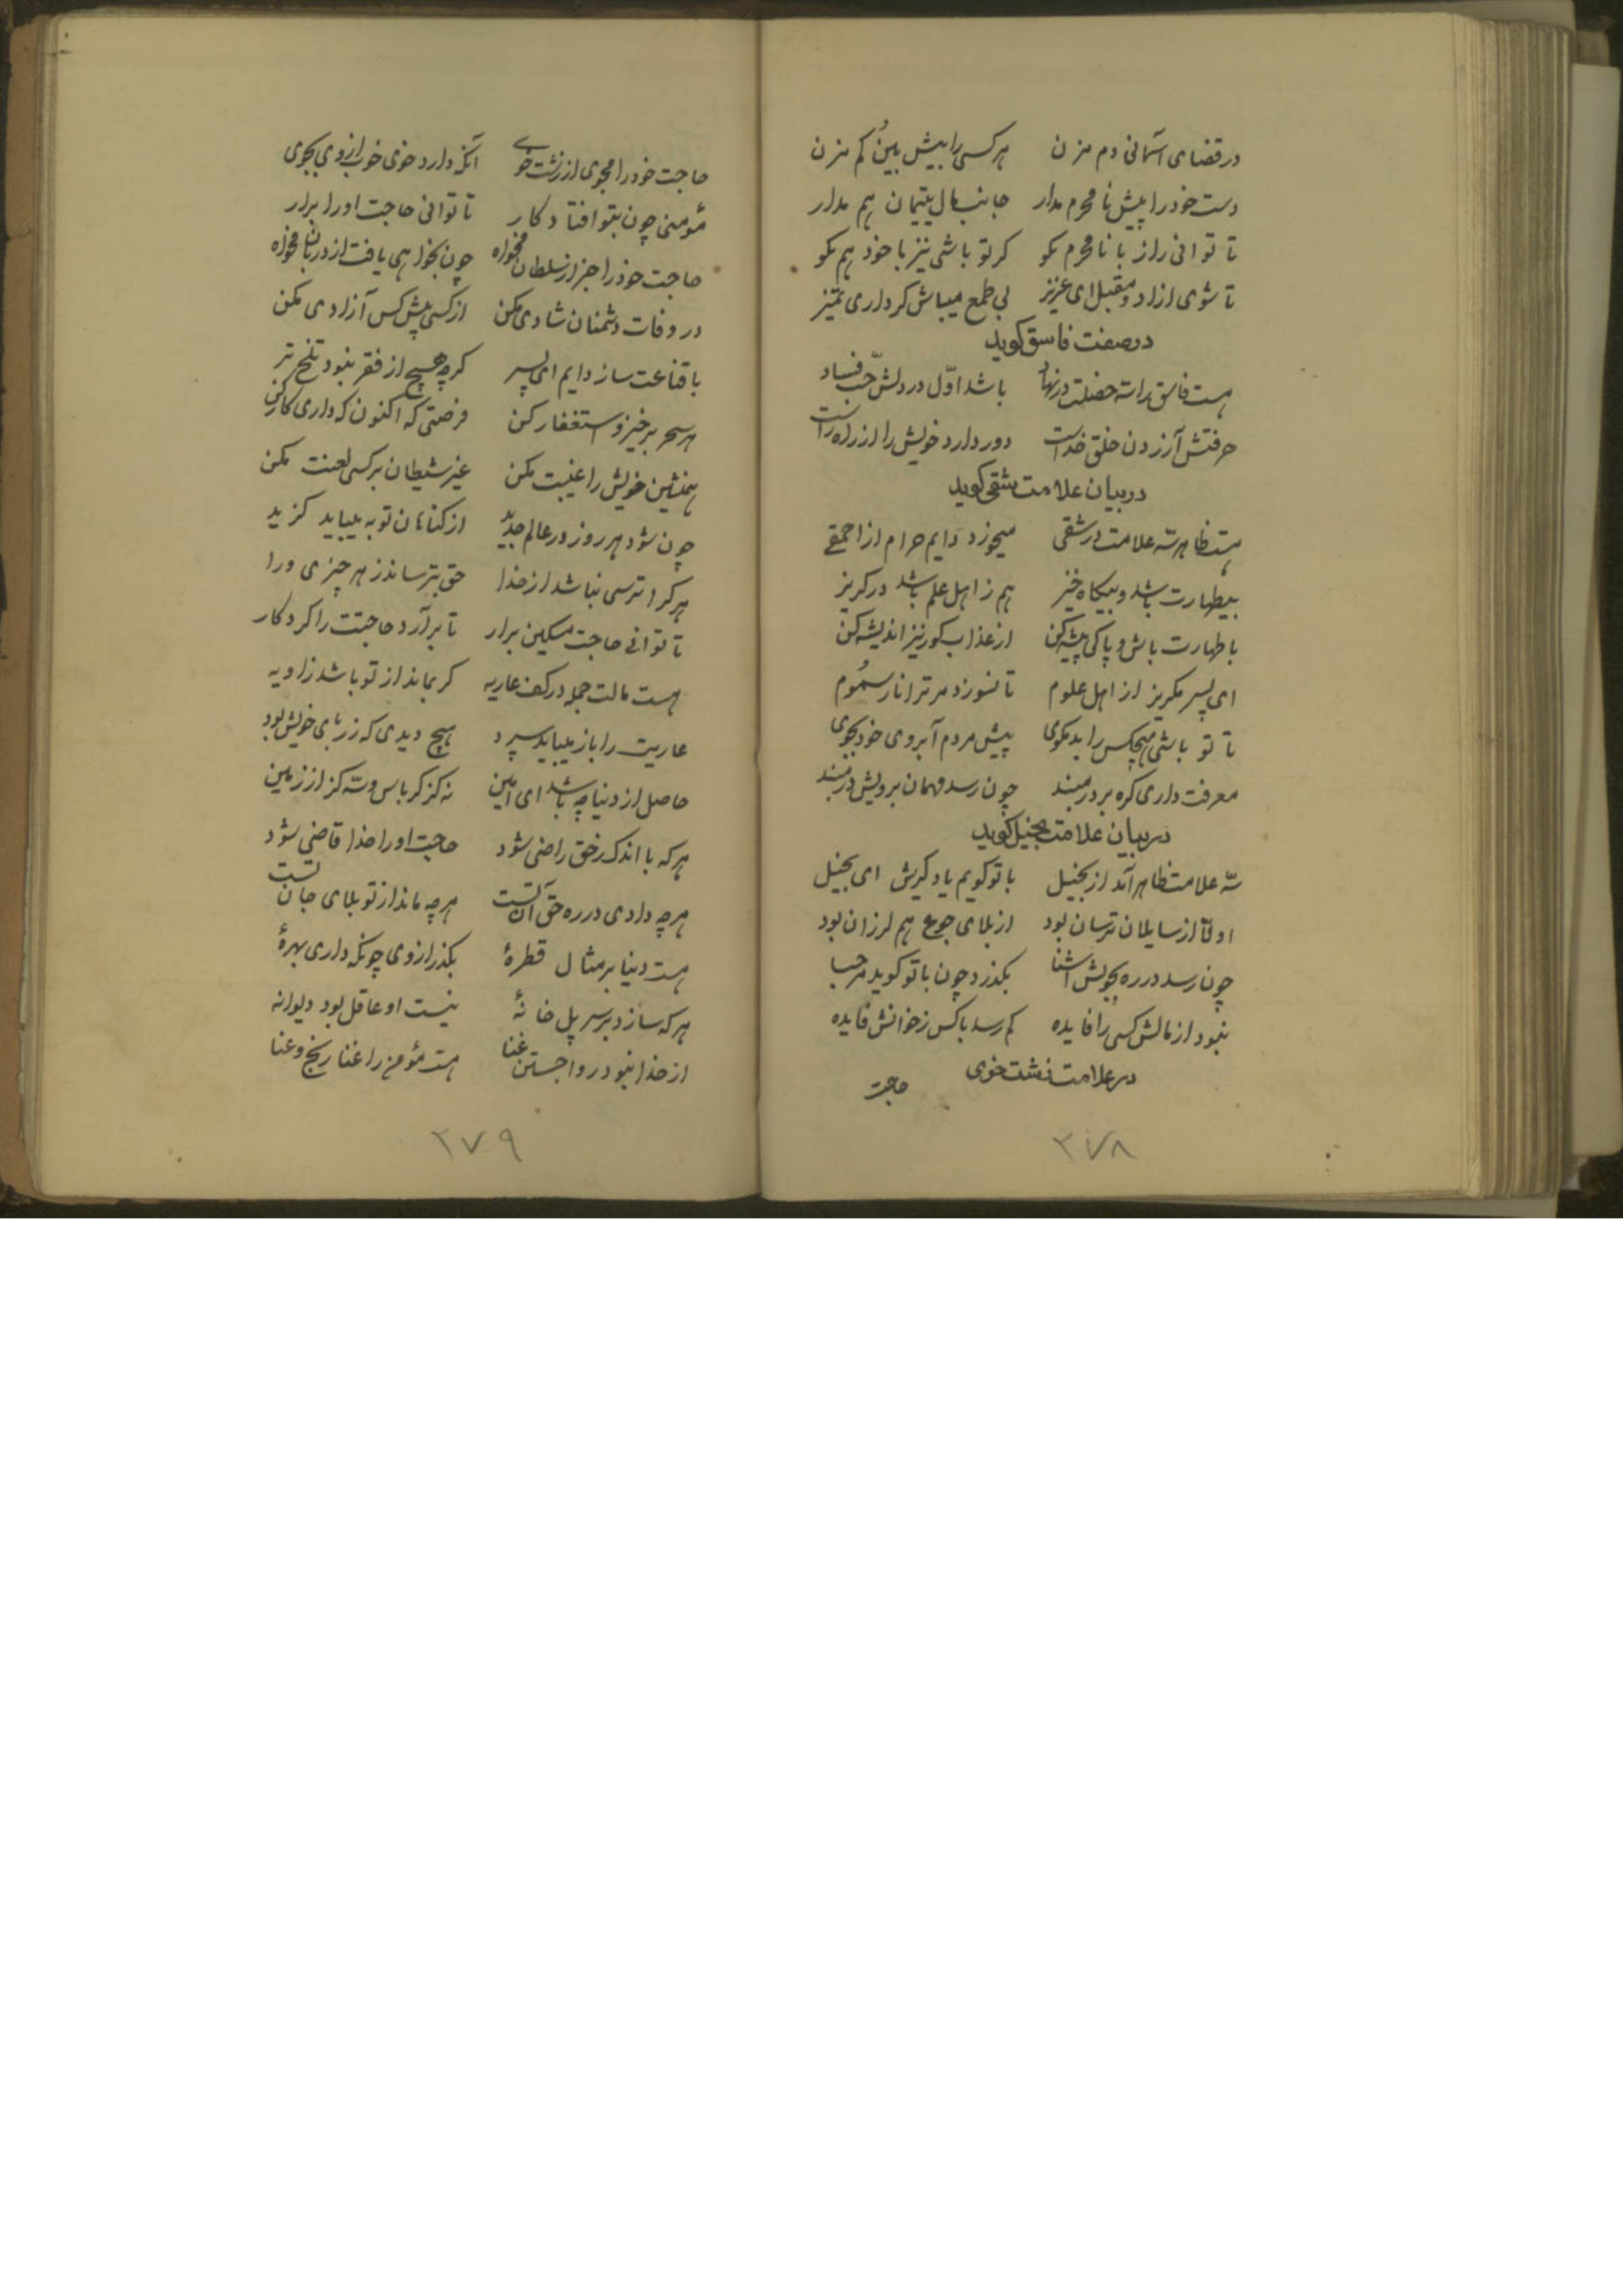 در قضای آسمانی دم مزن هر کسی را بیش بین کم مزن
دست خود را پیش نا محرم مدار جانب مال یتیمان هم مدار
تا توانی راز با نا محرم مکو کر تو باشی نیز با خود هم مکو
تا شوی ازاد و مقبل ای عزیز بی طمع میباش کر داری تمیز
در صفت فاسق کوید
هست فاسق را سه خصلت در نهاد باشد اوّل در دلش حبّ فساد
حرفتش آزردن خلق خداست دور دارد خویش را از راه راست
در بیان علامت شقی کوید
هست ظاهر سه علامت در شقی میخورد دایم حرام از احمقی
بیطهارت باشد و بیکاه خیز هم ز اهل علم باشد در کریز
با طهارت باش و پاکی پیشه کن از عذاب کور نیز اندیشه کن
ای پسر مکریز از اهل علوم تا نسوزد مر ترا نار سموم
تا تو باشی هیچکس را بد مکوی پیش مردم آبروی خود مجوی
معرفت داری کره بر در مبند چون رسد مهمان برویش در مبند
در بیان علامت بخیل کوید
سه علامت ظاهر آمد از بخیل با تو کویم یاد کیرش ای بخیل
اولّا از سایلان ترسان بود از بلای جوع هم لرزان بود
چون رسد در ره بخویش آشنا بکذرد چون با تو کوید مرحبا
نبود از مالش کسی را فایده کم رسد با کس ز خوانش فایده
در علامت زشت خوی
حاجت
۲۷۸
حاجت خود را مجوی از زشت خوی آنکه دارد خوی خوب از وی بجوی
مؤمنی چون بتو افتاد کار تا توانی حاجت او را برار
حاجت خود را جز از سلطان مخواه چون بخواهی یافت از دربان مخواه
در وفات دشمنان شادی مکن از کسی پیش کس آزادی مکن
با قناعت ساز دایم ای پسر کرچه هیچ از فقر نبود تلخ تر
هر سحر برخیز و استغفار کن فرصتی که اکنون که داری کار کن
همنشین خویش را غیبت مکن غیر شیطان بر کسی لعنت مکن
چون شود هر روز در عالم جدید از کناهان توبه میباید کزید
هر کرا ترسی نباشد از خدا حق بترساند ز هر چیزی ورا
تا توانی حاجت مسکین برار تا برآرد حاجتت را کردکار
هست مالت جمله در کف عاریه کر بماند از تو باشد زاویه
عاریت را باز میباید سپرد هیچ دیدی که زر با خویش بود
حاصل از دنیا چه باشد ای امین نه کز کرباس و سه کز از زمین
هر که با اندک ز حق راضی شود حاجت او را خدا قاضی شود
هرچه دادی در ره حق آن تست هرچه ماند از تو بلای جان تست
هست دنیا بر مثال قطرهٔ بکذر از وی چونکه داری بهرهٔ
هر که سازد بر سر پل خانهٔ نیست او عاقل بود دیوانه
از خدا نبود روا جستن غنا هست مؤمن را غنا رنج و عنا
۲۷۹